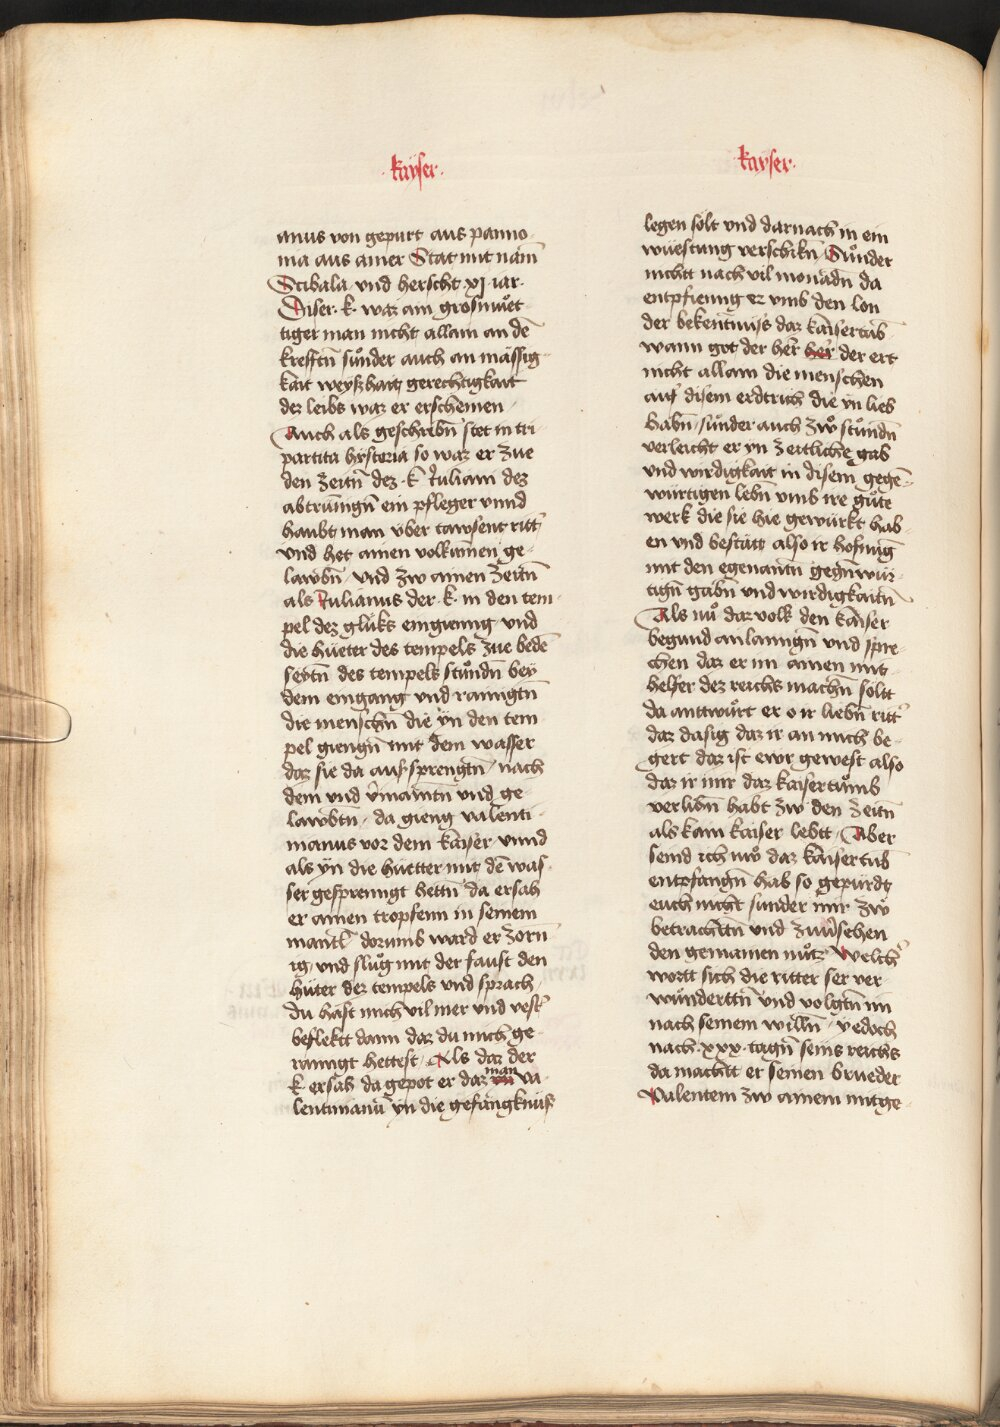 ·kayser·
anus von gepurt aus panno-
nia aus ainer Stat mit nam̄
Scibala und herscht ·xj· iar·
Diser ·k· waz ain grosmüet
tiger man nicht allain an dē
krefftn̄ sunder auch an mässig-
kait weyszhait gerechtigkait
dez leibs waz er erscheinen
Auch als geschribn̄ stet in tri-
partita hystoria so waz er zue
den zeitn̄ dez ·k· Juliani dez
abtrunīgn̄ ein pfleger vnnd
haubt man vber tawsent ritt̄
vnd het ainen volkumen ge-
lawbn̄ vnd zw ainen zeitn̄
als Julianus der ·k· in den tem-
pel dez glüks eingienng vnd
die hüeter des tempels zue bedē
seytn̄ des tempels stundn̄ bey
dem eingang vnd rainigtn̄
die menschn̄ die yn den tem
pel giengn̄ mit dem wasser
daz sie da aufsprengtn̄ nach
dem vnd v̄maintn̄ vnd ge-
lawbtn̄ da gieng valenti-
nianus vor dem kaiser vnnd
als yn die hüetter mit dē was-
ser gesprenngt hettn̄ da ersah
er ainen tropfenn in seinem
mantl̄ dorumb ward er zorn̄
ig vnd slug mit der faust den
hüter dez tempels vnd sprach
du hast mich vil mer vnd vest̄
beflektt dann daz du mich ge-
rainigt hettest Als daz der
k· ersah da gepot er daz man va-
lentinianū yn die gefangknüß
kayser·
legen solt vnd darnach in ein
wüestung verschikn̄ Sunder
nichtt nach vil monadn̄ da
entpfienng er vmb den lon
der bekentnüss daz kaisertūb
wann got der her̄ her̄ der ert
nicht allain die menschen
auf disem erdtrich die yn lieb
habn̄ sunder auch zw stundn̄
verleicht er yn zeitliche gab
vnd wirdigkait in disem gegē-
würtigen lebn̄ vmb ire güte
werk die sie hie gewürkt hab
en vnd bestätt also ir hofnuḡ
mit den egenantn̄ gegn̄wür-
tign̄ gabn̄ vnd wirdigkaitn̄
Als nu daz volk den kaiser
begund anlanngn̄ vnd spre-
chen daz er im ainen mit-
helfer dez reichs machn̄ soltt
da anttwurt er o ir liebn̄ ritt̄
daz dasig daz ir an mich be-
gert daz ist ewr gewest also
daz ir mir daz kaisertumb
verlihn̄ habt zw den zeitn̄
als kain kaiser lebtt Aber
seind ich nw daz kaisertūb
entpfangn̄ hab so gepurdt
euch nicht sunder mir zw
betrachttn̄ vnd zuu̇sehen
den gemainen nutz Welch̄
wortt sich die ritter ser ver-
wunderttn̄ vnd volgtn̄ im
nach seinem willn̄ yedoch
nach ·xxx· tagn̄ seins reichs
da machtt er seinen brueder
Valentem zw ainem mitge-